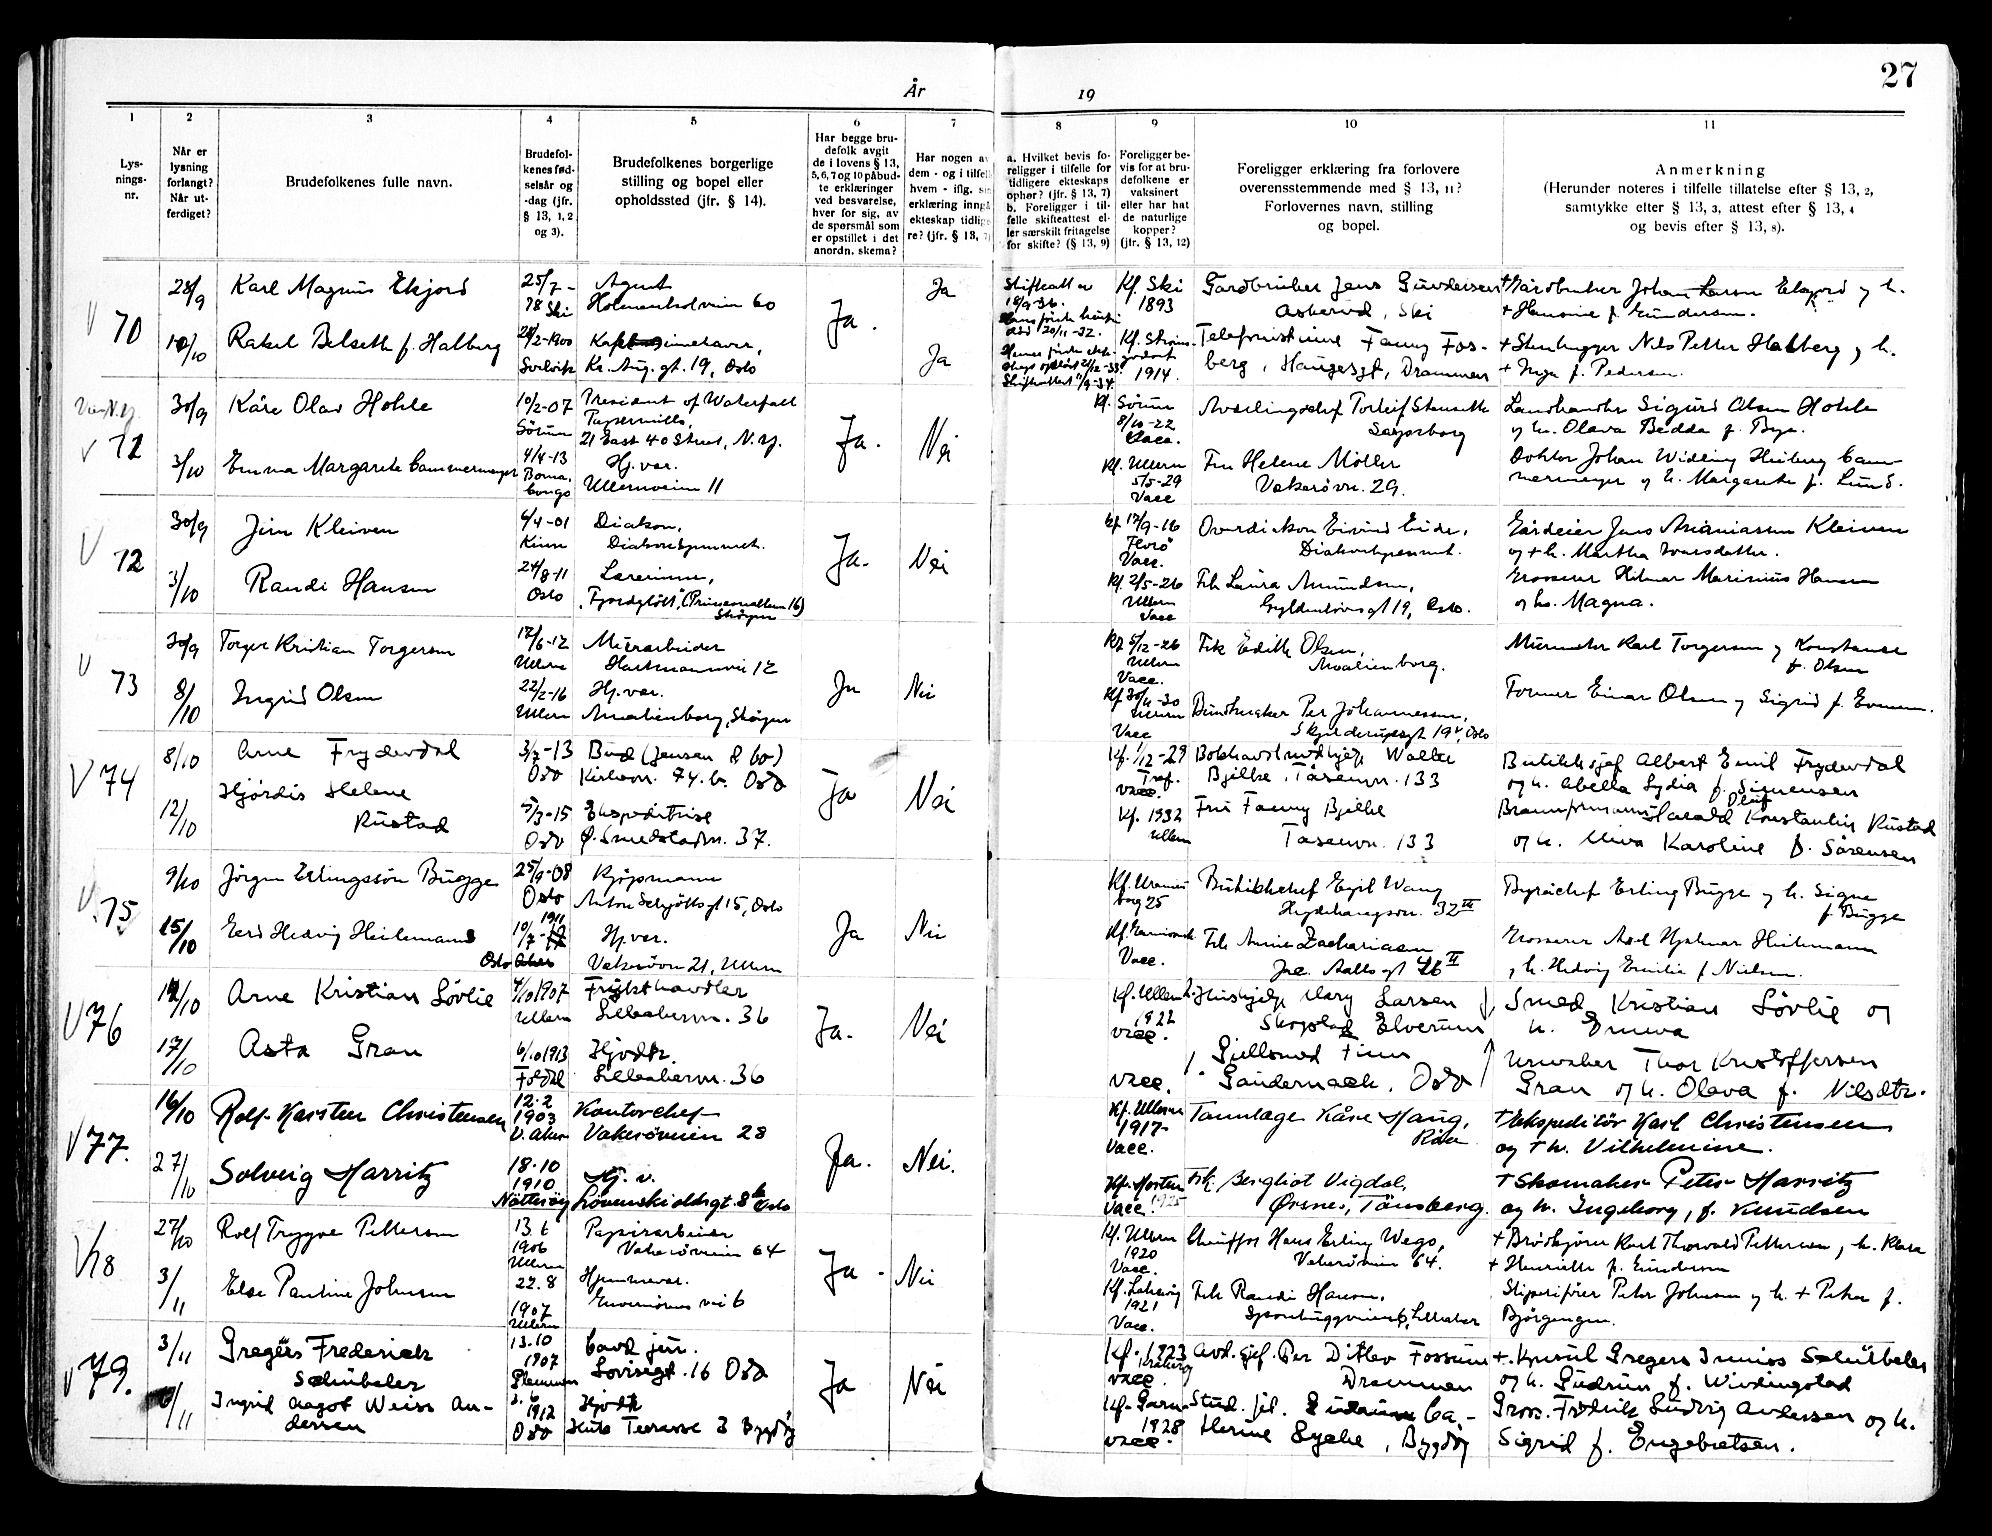 År
19
27
1
2
3
4
5
6
7
8
9
10
11
Lys-
nings-
nr.
Når er
lysning
forlangt?
Når ut-
ferdiget?
Brudefolkenes fulle navn.
Brudefol-
kenes fød-
selsår og
-dag (jfr.
§ 13, 1, 2
og 3).
Brudefolkenes borgerlige
stilling og bopel eller
opholdssted (jfr. § 14).
Har begge bru-
defolk avgit
de i lovens § 13,
5, 6, 7 og 10 påbud-
te erklæringer
ved besvarelse,
hver for sig, av
de spørsmål som
er opstillet i det
anordn. skema?
Har nogen av
dem - og i tilfelle
hvem - iflg. sin
erklæring inngå
ekteskap tidlige
re? (jfr. § 13, 7)
a. Hvilket bevis fo-
religger i tilfelle for
tidligere ekteskaps
ophør? (jfr. § 13, 7)
b. Foreligger i til-
felle skifteattest el-
ler særskilt fritagelse
for skifte? (§ 13, 9)
Foreligger be-
vis for at bru-
defolkene er
vaksinert
eller har hat
de naturlige
kopper?
(jfr. § 13, 12)
Foreligger erklæring fra forlovere
overensstemmende med § 13, 11?
Forlovernes navn, stilling
og bopel.
Anmerkning
(Herunder noteres i tilfelle tillatelse efter § 13, 2,
samtykke efter § 13, 3, attest efter § 13, 4
og bevis efter § 13, 8).
V 70
28/9
Karl Magnus Ekjord
25/7-
78 Ski
Agent
Holmenkolveien 60
Ja.
Ja
Skifteatt av
Kf. Ski
1893
Gårdbruker Jens Gundersen
Askerud, Ski
+ Gårdbruker Johan Larsen Ekjord og h.
+ Hansine f. Gundersen.
10/10
Rakel Belseth f. Halberg
2-1900
Svelvik
Kr. Aug. gt. 19, Oslo
Ja
Kf. Strøms-
godset
1914.
Telefonistinne Fanny Fos-
berg, Haugesgt, Drammen
+ Stenhugger Nils Petter Halberg og h.
+ Inga f. Pedersen.
V 71
30/9
Kåre Olav Hohle
10/2-07
Sörum
President of Waterfall
Papermills,
21 East 40 Street, N.Y.
Ja.
Nei
Kf. Sörum
8/10-22
Vacc.
Avdelingschef Torleif Stenseth
Sarpsborg
Landhandler Sigurd Olsen Hohle
og h. Olava Bedda f. Bye.
3/10
Emma Margarete Cammermeyer
4/4-13
Boma,
Congo
Hj. vær.
Ullernveien 11
Kf. Ullern
5/5-29
Vacc
Fru Helene Möller
Vækerövn. 29.
Doktor Johan Widding Heiberg Cam-
mermeyer og h. Margarete f. Lund.
V 72
30/9
Jim Kleiven
4/4-01
Kinn
Diakon,
Diakonhjemmet.
Ja.
Nei
Kf 17/9-16
Florö
Vacc.
Overdiakon Eivind Eide,
Diakonhjemmet.
Gårdeier Jens Ananiassen Kleiven
og + h. Martha Ivarsdatter.
3/10
Randi Hansen
24/8-11
Oslo
Lærerinne,
"Fjordglött", (Prinsessealleen 16)
Sköyen
Kf. 2/5-26
Ullern
Vacc
Frk Laura Amundsen,
Gyldenlövesgt 19, Oslo.
Grosserer Hilmar Marinius Hansen
og h. Magna.
V 73
30/9
Torger Kristian Torgersen
17/6-12
Ullern
Murarbeider
Hartmannsvei 12
Ja
Nei
Kf 5/12-26
Ullern
Vacc.
Frk Edith Olsen,
Amalienborg.
Murmester Karl Torgersen og Konstanse
f. Olsen
8/10
Ingrid Olsen
22/2-16
Ullern
Hj. vær.
Amalienborg, Sköyen
Kf 30/11-30
Ullern
Vacc
Buntmaker Per Johannessen,
Skjelderupsgt 19, Oslo
Former Einar Olsen og Sigrid f. Evensen.
V 74
8/10
Arne Frydendal
3/7-13
Oslo
Bud (Jensen & Co)
Kirkevn. 74. b. Oslo
Ja
Nei
Kf. 1/12-29
Tref.
vacc.
Bokhavst.medhjelp Walter
Bjilke, Tåsenvn. 133
Butikksjef Albert Emil Frydendal
og h. Abella Lydia f. Simensen
12/10
Hjördis Helene
Rustad
5/3-15
Oslo
Ekspeditrise
Ø. Smedstadvn. 37.
Kf. 1932
Ullern
Fru Fanny Bjilke
Tåsenvn. 133
Brannformann Harald Olaf Konstantin Rustad
og h. Alma Karoline f. Sörensen
V. 75
9/10
Jörgen Erlingssön Bugge
25/9-08
Oslo
Kjöpmann
Anton Schjöttsgt 15, Oslo
Ja
Nei
Kf. Uranien
borg 25
Butikkchef Egil Wang
Heggehaugsvn. 32 III
Byråchef Erling Bugge og h. Signe
f. Bugge
15/10
Gerd Hedvig Heilemann
1911
10/7-
Oslo Aker
Hj. vær.
Vækerövn 21, Ullern
Vacc.
Frk Annie Zachariasen
Jac. Aallsgt 26 II
Grosserer Axel Hjalmar Heilemann
og h. Hedvig Emilie f Nielsen.
V 76
14/10
Arne Kristian Lövlie
4/10 1907
Ullern
Frukthandler
Lilleakervn. 36
Ja.
Nei
Kf. Ullern
1922
vacc.
Hushjelp Mary Larsen
Skogstad Elverum
Smed Kristian Lövlie og
h. Emma
17/10
Asta Gran
6/10 1913
Foldal
Hjvdtr.
Lilleakervn. 36
vacc.
Gullsmed Finn
Gaudernack, Oslo
Urmaker Thor Kristoffersen
Gran og h. Olava f. Nilsdtr.
V 77.
16/10
Rolf Karsten Christensen
12.2
1903
V. Aker
Kontorchef
Vækeröveien 28
Ja.
Nei.
Kf. Ullern
1917
Vacc.
Tannlæge Kåre Haug,
Röa
+ Ekspeditör Karl Christensen
og + h. Vilhelmine.
27/10
Solveig Marritz
18.10
1910
Nötteröy
Hj. v.
Lövenskioldsgt. 8b Oslo
Kf. Horten
1925
Vacc.
Frk. Bergliot Vigdal,
Ørsnes, Tönsberg.
+ Skomaker Peter Marritz
og h. Ingeborg, f. Knudsen
V 78
27/10
Rolf Trygve Pettersen
13.6
1906
Ullern
Papirarbeider
Vækeröveien 64
Ja.
Nei
Kf. Ullern
1920
Vacc.
Chauffør Hans Erling Wego,
Vækeröveien 64.
+ Brödkjörer Karl Thorvald Pettersen og h. Klara
+ Henriette f. Gundersen
3/11
Else Pauline Johnsen
22.8
1907
Ullern
Hjemmevær.
Kf. Larvik
1921
Vacc.
Frk Randi Hansen,
Sponhuggveien 6, Lilleaker
Sliperifører Peter Johnsen og h. + Petra f.
Björgengen.
V 79.
3/11
Gregers Frederick
Schübeler
13.10
1907
Glemmen
Cand. jur.
Lovisegt. 16 Oslo
Ja
Nei
Kf. 1923
Kråkerøy
vacc.
Avd. sjef. Per Ditlev Fossum
Drammen
+ Konsul Gregers Junius Schübeler
og h. Gudrun f. Wivdingstad
6/11
Ingrid Aagot Weiss An-
dersen
1912
Oslo
Hjvdtr
Huk Terrasse 3 Bygdöy
Kf. Garn.
1928
vacc.
Stud. fil. Gudrun Ca-
therine Sycke, Bygdöy
Gross. Fredrik Ludvig Andersen og h.
Sigrid f. Engebretsen.